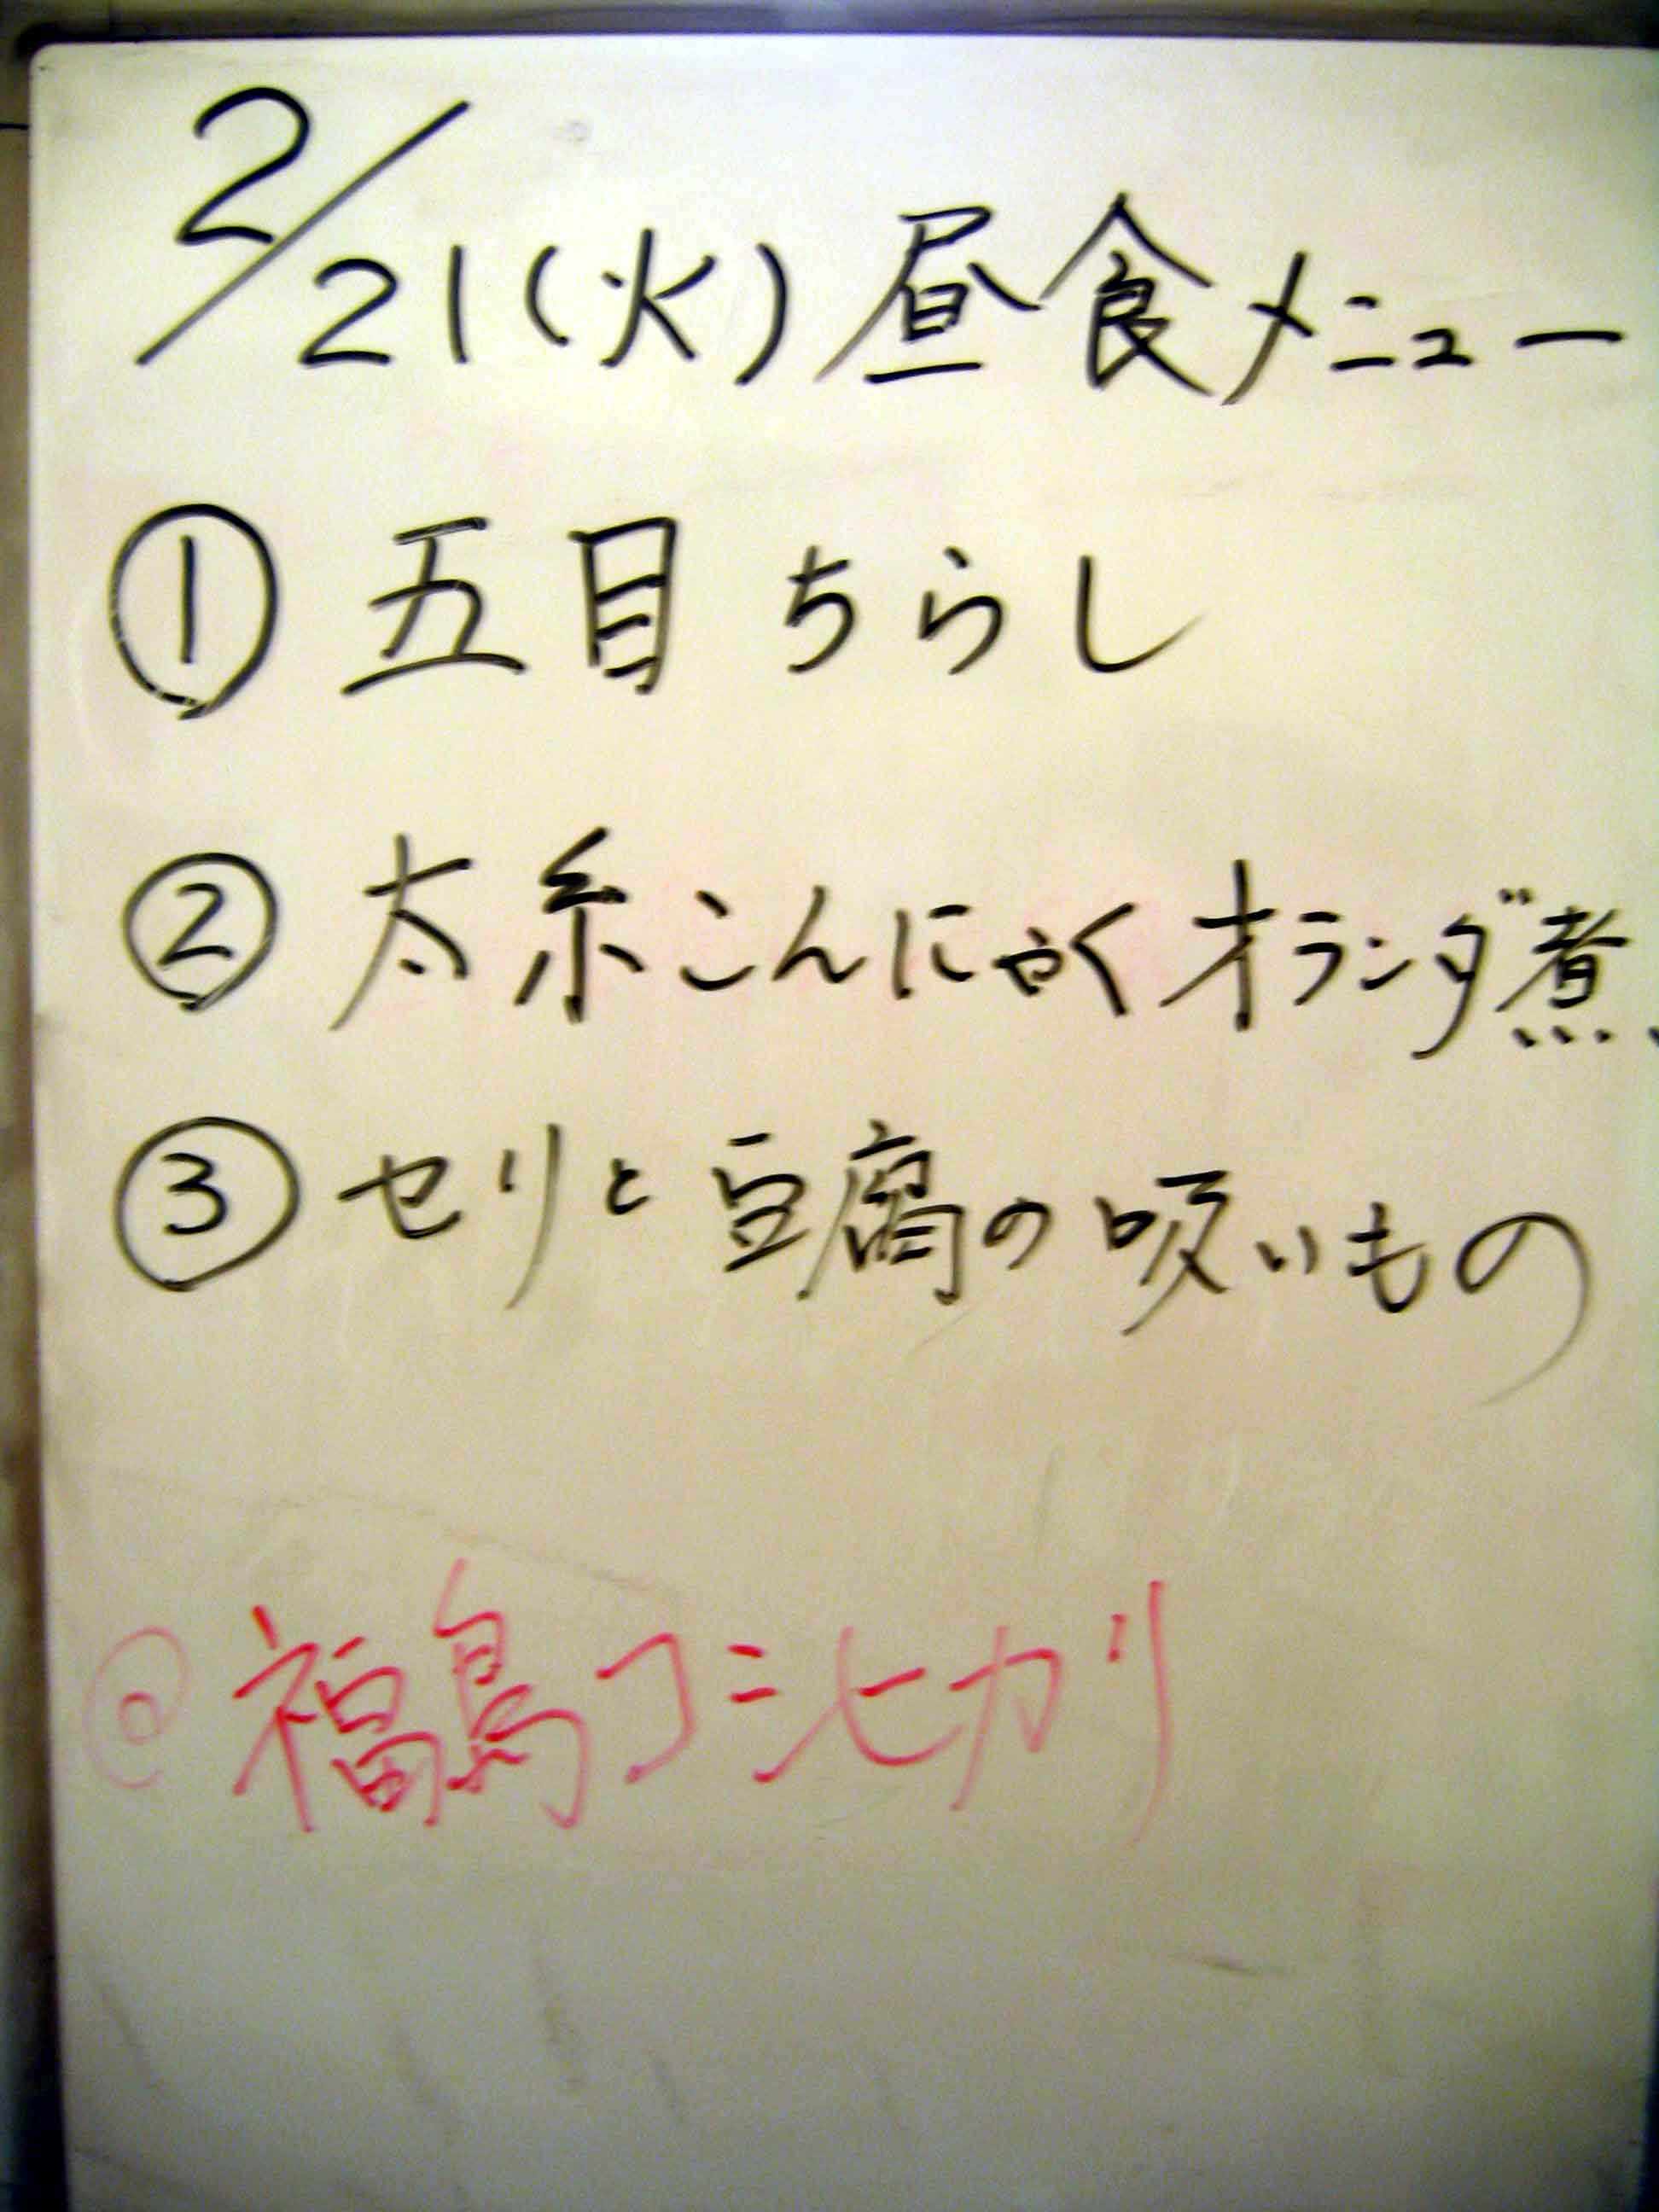 2/21(火)昼食メニュー
① 五目ちらし
② 太糸こんにゃくオランダ煮
③ セリと豆腐の吸いもの
◎福島コシヒカリ